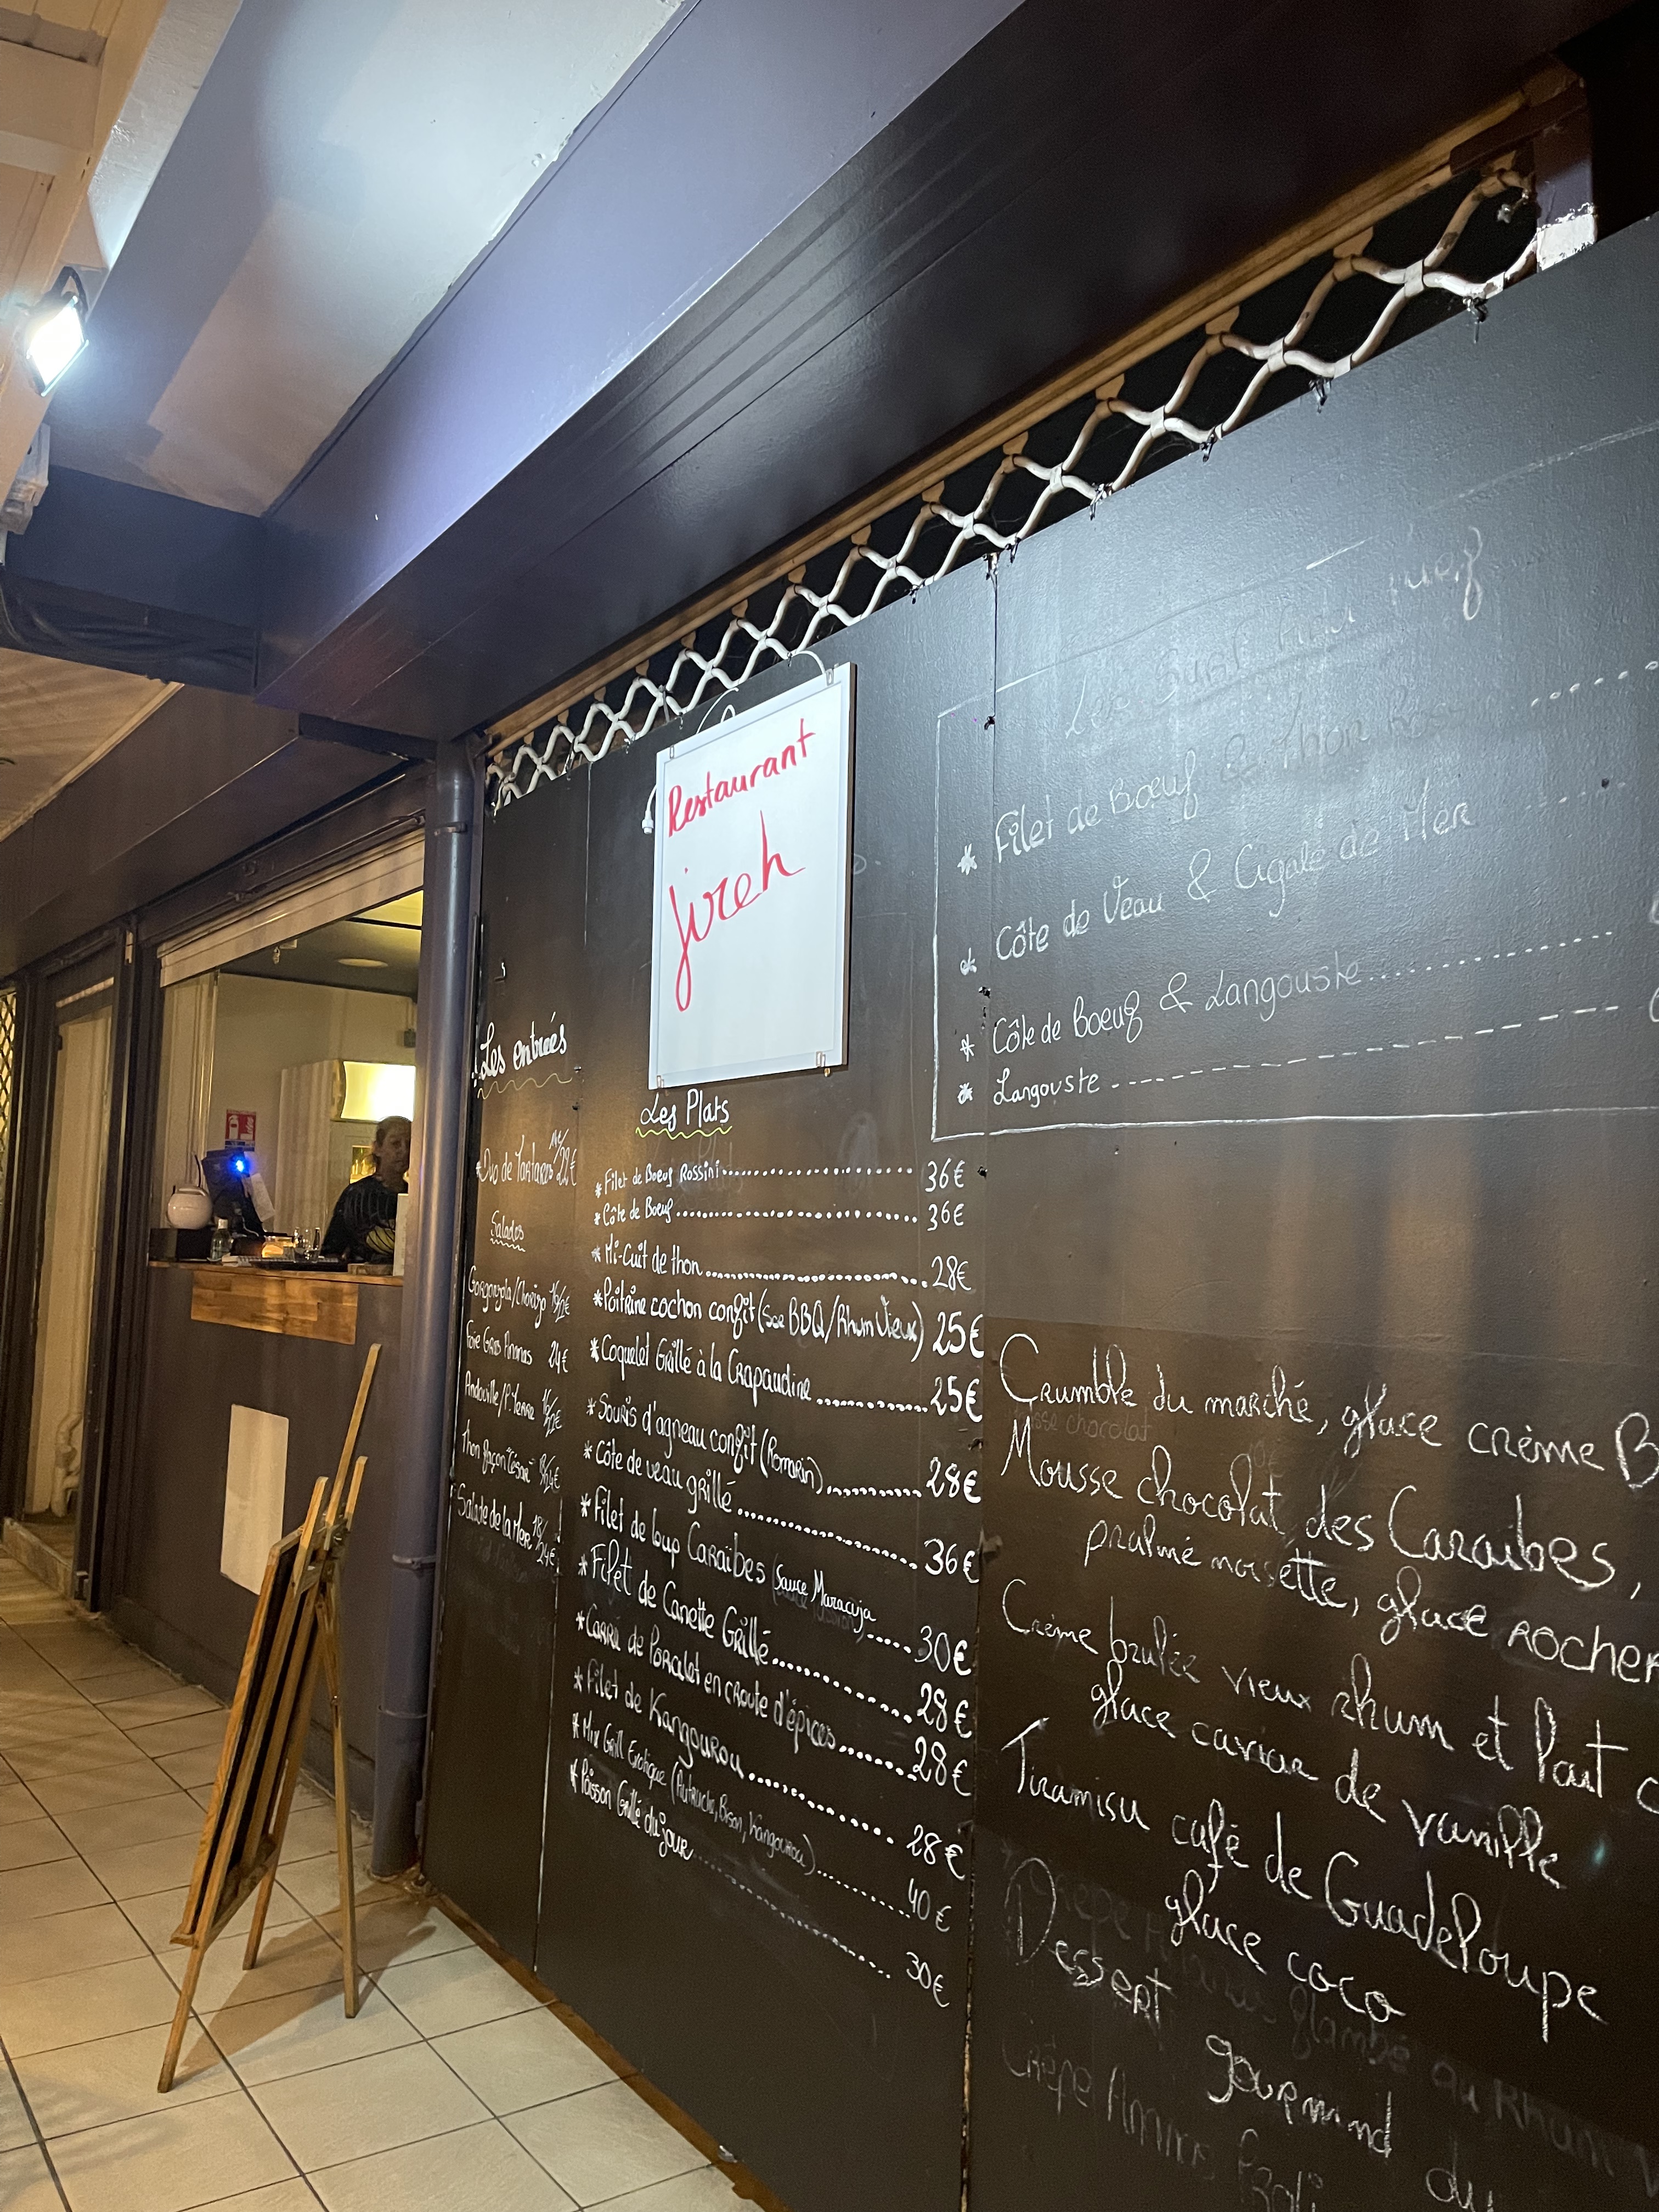 Restaurant
jireh
Les entrées
*Duo de Tartares 22€
Salades
Gorgonzola/Chorizo
Foie Gras Ananas 24€
Andouille/P. Terre
Thon façon "César"
Salade de la Mer 18/24€
Les Plats
*Filet de Boeuf Rossini 36€
*Côte de Boeuf 36€
*Mi-Cuit de thon 28€
*Poitrine cochon confit (Sce BBQ/Rhum Vieux) 25€
*Coquelet Grillé à la Crapaudine 25€
*Souris d'agneau confit (Romarin) 28€
*Côte de veau grillé 36€
*Filet de loup Caraïbes (Sauce Maracuja) 30€
*Filet de Canette Grillé 28€
*Carré de Porcelet en croute d'épices 28€
*Filet de Kangourou 28€
*Mix Grill Exotique (Autruche, Bison, Kangourou) 40€
*Poisson Grillé du jour 30€
* Filet de Boeuf & Thon
* Côte de Veau & Cigale de Mer
* Côte de Boeuf & Langouste
* Langouste
Crumble du marché, glace crème B
Mousse chocolat des Caraibes,
praliné noisette, glace rocher
Crème brulée vieux rhum et lait
glace caviar de vanille
Tiramisu café de Guadeloupe
glace coco
Dessert gourmand du